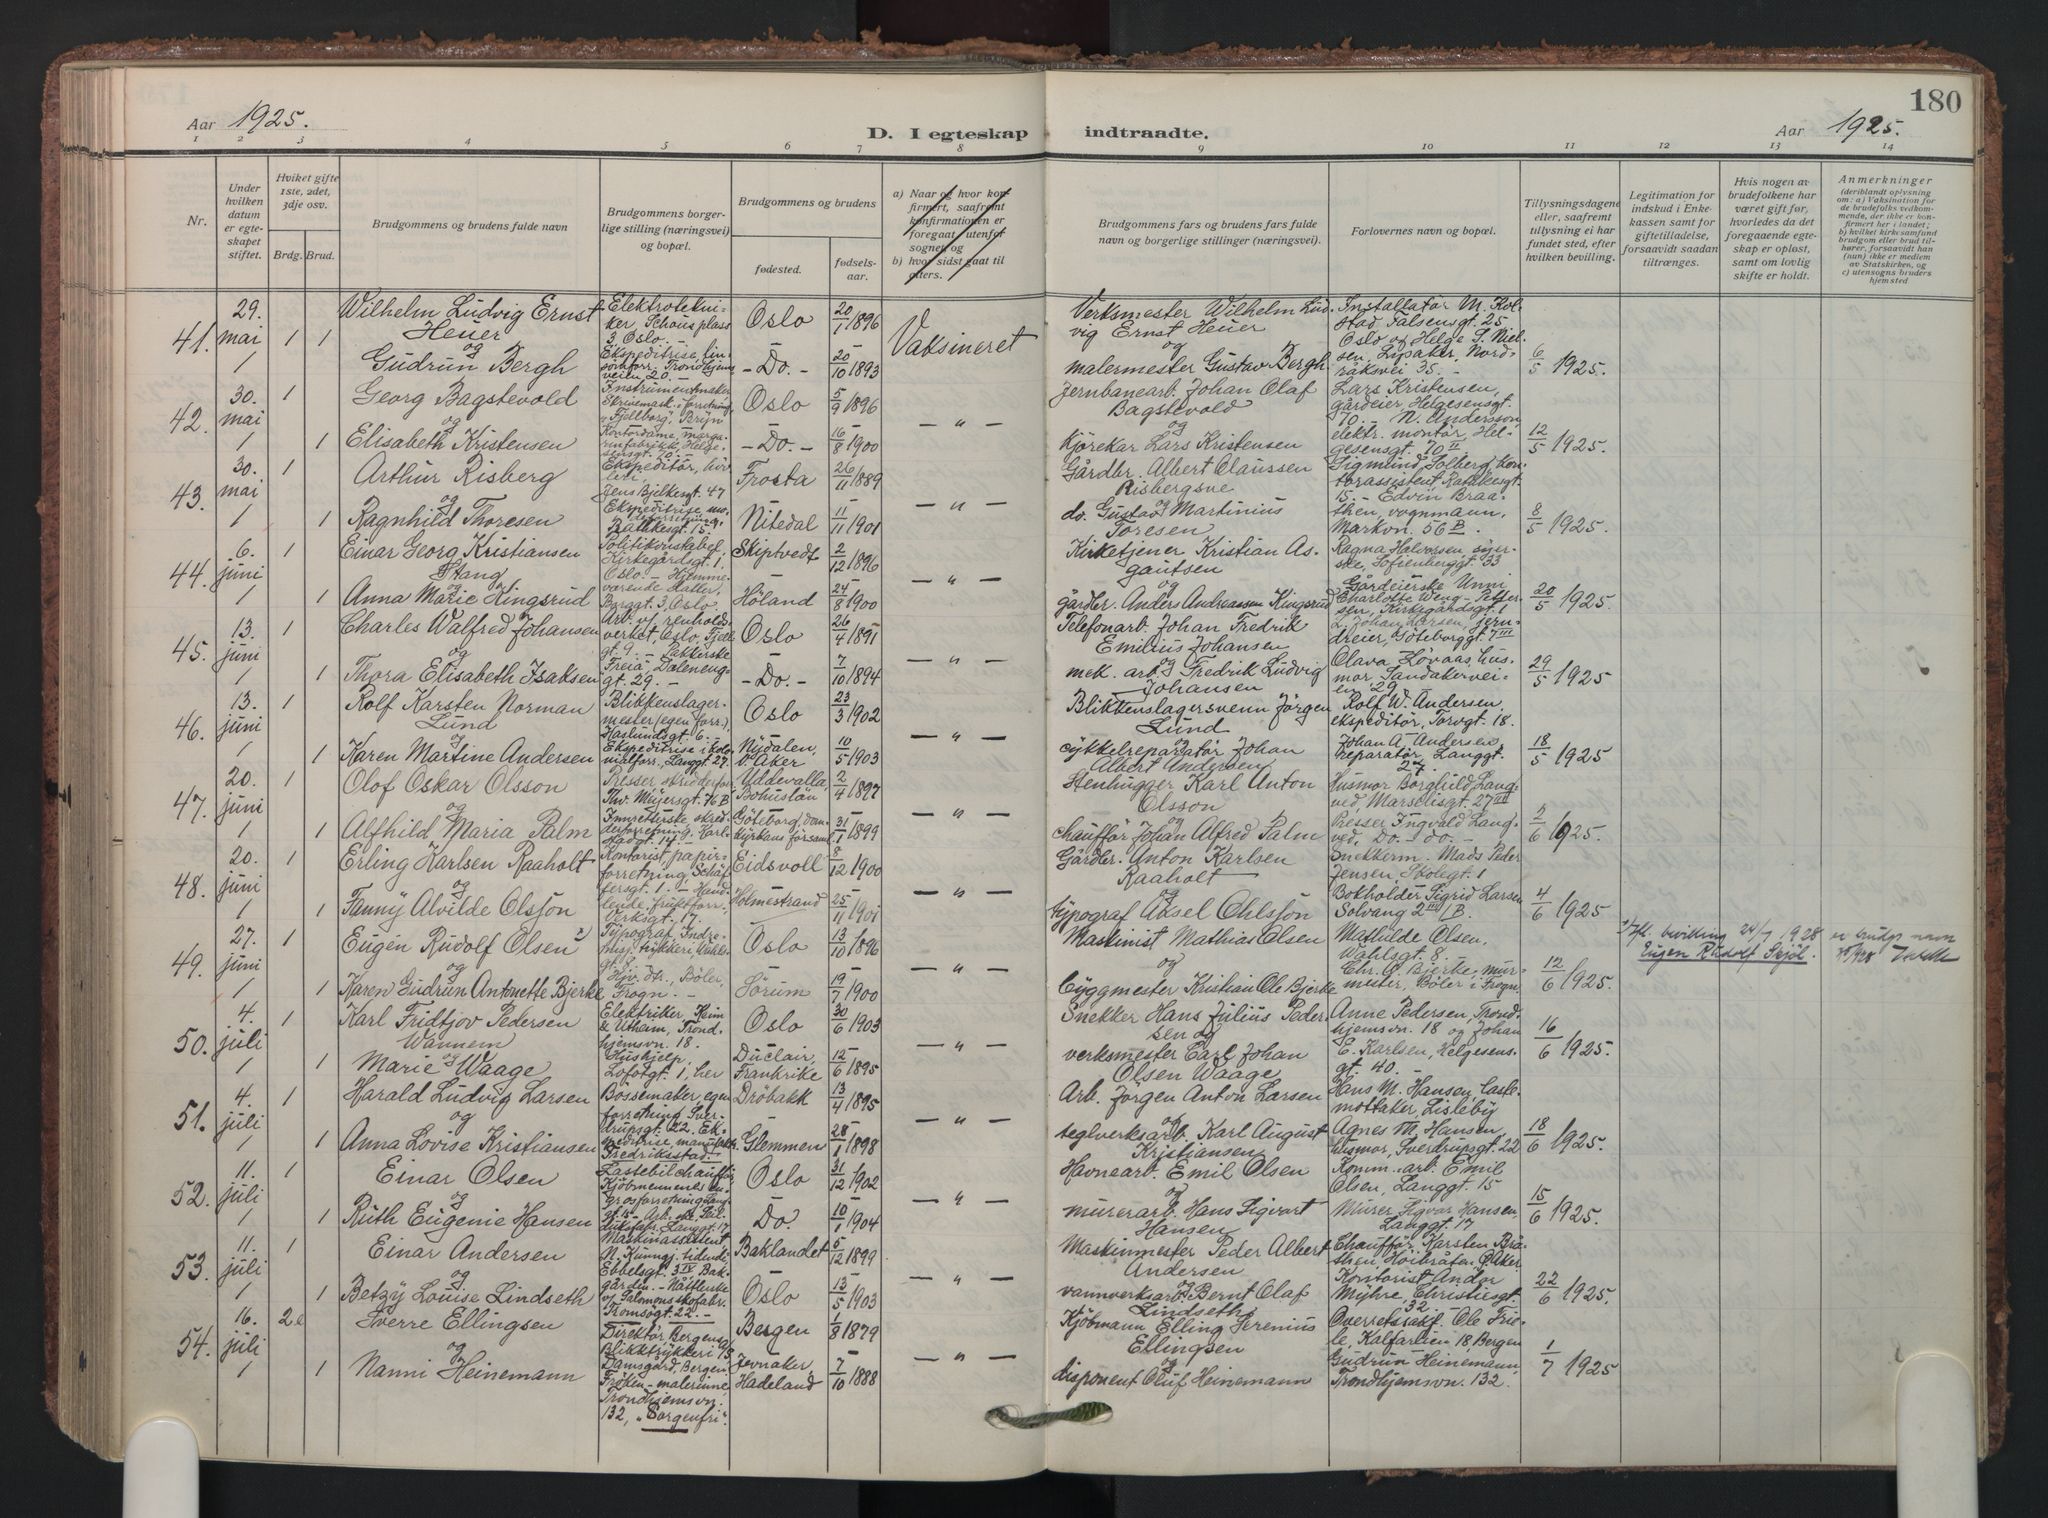 180
Aar 1925.
D. I egteskap indtraadte.
Aar 1925.
1 2 3 4 5 6 7 8 9 10 11 12 13 14
Nr.
Under hvilken datum er egteskapet stiftet.
Hviket gifte 1ste, 2det, 3dje osv.
Brdg. Brud.
Brudgommens og brudens fulde navn
Brudgommens borgerlige stilling (næringsvei) og bopæl.
Brudgommens og brudens
fødested.
fødselsaar.
a) Naar og hvor konfirmert, saafremt konfirmationen er foregaat utenfor sognet, og
b) hvor sidst gaat til alters.
Brudgommens fars og brudens fars fulde navn og borgerlige stillinger (næringsvei).
Forlovernes navn og bopæl.
Tillysningsdagene eller, saafremt tillysning ei har fundet sted, efter hvilken bevilling.
Legitimation for indskud i Enkekassen samt for giftetilladelse, forsaavidt saadan tiltrænges.
Hvis nogen av brudefolkene har været gift før, hvorledes da det foregaaende egteskap er opløst, samt om lovlig skifte er holdt.
Anmerkninger
(deriblandt oplysning om: a) Vaksination for de brudefolks vedkommende, der ikke er konfirmert her i landet; b) hvilket kirkesamfund brudgom eller brud tilhører, forsaavidt han (hun) ikke er medlem av Statskirken, og c) utensogns bruders hjemsted
41. 29. mai 1 1
Wilhelm Ludvig Ernst Heuer
og
Gudrun Bergh
Elektrotekniker, Schous plass 3, Oslo.
Oslo 20/1 1896
- Do. - 20/10 1893
Vaksineret
Verksmester Wilhelm Ludvig Ernst Heuer
og
malermester Gustav Bergh
Installatør M. Kolstad Falsensgt. 25 Oslo og Helge S. Nielsen, Lipaker, Nordraksvei 35. -
6/5 1925.
42. 30. mai 1 1
Georg Bagstevold
og
Elisabeth Kristensen
Oslo 5/9 1896
- Do. - 16/8 1900
— " —
Jernbanearb. Johan Olaf Bagstevold
og
kjørekar Lars Kristensen
Lars Kristensen, gårdeier Helgesensgt. 70. - N. Andersson, elektr. montør, Helgesensgt. 70 II
12/5 1925.
43. 30. mai 1 1
Arthur Risberg
og
Ragnhild Thoresen
Jens Bjelkesgt. 47
Ratkesgt. 15. -
Frosta 26/11 1889
Nitedal 11/11 1901
— " —
Gårdbr. Albert Claussen Risbergsve
og
do. Gustav Martinius Toresen
Sigmund Solberg, kontorassistent Rathkesgt. 15. - Edvin Braathen, vognmann, Markvn. 56 B.
8/5 1925.
44. 6. juni 1 1
Einar Georg Kristiansen Stang
og
Anna Marie Kingsrud
Politikonstabel Kirkegårdsgt. 1, Oslo. - Hjemmeværende datter, Borggt. 3, Oslo.
Skiptvedt 2/12 1896
Høland 24/8 1900
— " —
Kirketjener Kristian Asgautsen
og
gårdbr. Anders Andreassen Kingsrud
Ragna Halvorsen, syerske, Sofienberggt. 33
Gårdeierske Unni Charlotte Weng-Pettersen, Kirkegårdsgt. 1
20/5 1925.
45. 13. juni 1 1
Charles Walfred Johansen
og
Thora Elisabeth Isaksen
Arb. v/ renholdsverket, Oslo, Fjellgt. 9. - Pakkerske Freia Daleneng-gt. 29. -
Oslo 26/4 1891
- Do. - 7/10 1894
— " —
Telefonarb. Johan Fredrik Emilius Johansen
og
mek. arb. Fredrik Ludvig Johansen
L. Johan Larsen, jerndreier, Göteborggt. 7 III
Olava Løvaas, husmor Sandakerveien 29
29/5 1925
46. 13. juni 1 1
Rolf Karsten Norman Lund
og
Karen Martine Andersen
Blikkenslagermester (egen forr.), Haslundsgt. 6. - Ekspeditrise i kolonialforr., Langgt. 27.
Oslo 23/3 1902
Nydalen, v. Aker 10/5 1903
— " —
Blikkenslagersvenn Jørgen Lund
og
cykkelreparatør Johan Albert Andersen
Rolf W. Andersen, ekspeditør, Torvgt. 18.
Johan A. Andersen, reparatør, Langgt. 27.
18/5 1925
47. 20. juni 1 1
Olof Oskar Olsson
og
Alfhild Maria Palm
Presser, skredderforr., Thv. Meyersgt. 76 B
Uddevalla, Bohuslän 2/4 1897
Göteborg, domkyrkans församl. 31/1 1899
— " —
Stenhugger Karl Anton Olsson
og
chauffør Johan Alfred Palm
Husmor Borghild Langved, Marselisgt. 27 III
Presser Ingvald Langved, Do. - do. -
2/6 1925.
48. 20. juni 1 1
Erling Karlsen Raaholt
og
Fanny Alvilde Olsson
Kontorist, papirforretning, Schäffersgt. 1.
Verksgt. 17.
Eidsvoll 8/12 1900
Holmestrand 25/11 1901
— " —
Gårdbr. Anton Karlsen Raaholt
og
typograf Aksel Ohlsson
Snekkerm. Mads Peder Jensen, Skolegt. 1
Bokholder Sigrid Larsen Solvang 2 III B.
4/6 1925
49. 27. juni 1 1
Eugén Rudolf Olsen 2)
og
Karen Gudrun Antonette Bjerke
Hjv. dtr., Bøler, Frogn. -
Oslo 13/10 1896
Sørum 19/7 1900
— " —
Maskinist Mathias Olsen
og
byggmester Kristian Ole Bjerke
Mathilde Olsen, Wahlsgt. 8.
Chr. O. Bjerke, murmester, Bøler i Frogn.
12/6 1925.
Ifl. bevilling 24/9 1928 er brudg. navn Eugen Rudolf Skjøl.
50. 4. juli 1 1
Karl Fridtjov Pedersen Wannem
og
Marie Waage
Elektriker, Keim & Utheim, Trondhjemsvn. 18.
Hushjelp, Lofotgt. 1, her
Oslo 30/6 1903
Duclair, Frankrike 12/6 1895
— " —
Snekker Hans Julius Pedersen og
verksmester Carl Johan Olsen Waage
Anne Pedersen, Trondhjemsvn. 18 og Johan E. Karlsen, Helgesensgt. 40. -
16/6 1925.
51. 4. juli 1 1
Harald Ludvig Larsen
og
Anna Lovise Kristiansen
Bøssemaker, egen forretning Sverdrupsgt. 22. Ekspeditrise, manufakt. Fredriksstad.
Drøbakk 13/4 1895
Glemmen 28/1 1898
— " —
Arb. Jørgen Anton Larsen
og
teglverksarb. Karl August Kristiansen
Hans M. Hansen, lastemottaker, Lisleby
Agnes M. Hansen, husmor, Sverdrupsgt. 22
18/6 1925.
52. 11. juli 1 1
Einar Olsen
og
Ruth Eugenie Hansen
Lastebilchauffør
Langgt. 17
Oslo 31/12 1902
Do. 10/1 1904
— " —
Havnearb. Emil Olsen
og
murerarb. Hans Sigvart Hansen
Komm. arb. Emil Olsen, Langgt. 15
Murer Sigvar Hansen, Langgt. 17
15/6 1925.
53. 11. juli 1 1
Einar Andersen
og
Betzy Louise Lindseth
Maskinassistent N. Kunngj. tidende Ebbelsgt. 3 IV Bakgården. - Nåtlerske v/ Salomonskofabr. Tromsøgt. 22. -
Baklandet 5/12 1899
Oslo 13/5 1903
— " —
Maskinmester Peder Albert Andersen
og
vannverksarb. Bernt Olaf Lindseth
Chauffør Karsten Bråthen, Høibråten, Ø. Aker
Kontorist Andor Myhre, Christiesgt. 32
22/6 1925.
54. 16. juli 2e 1
Sverre Ellingsen
og
Nanni Heinemann
Direktør Bergens Blikktrykkeri A/S Damsgård, Bergen.
Frøken - malerinne, Trondhjemsvn. 132, "Sorgenfri".
Bergen 1/8 1879
Jevnaker, Hadeland 7/10 1888
— " —
Kjøbmann Elling Serenius Ellingsen
og
disponent Oluf Heinemann
Overretssakf. Ole Friele, Kalfarlien 18, Bergen
Gudrun Heinemann, Trondhjemsvn. 132.
1/7 1925